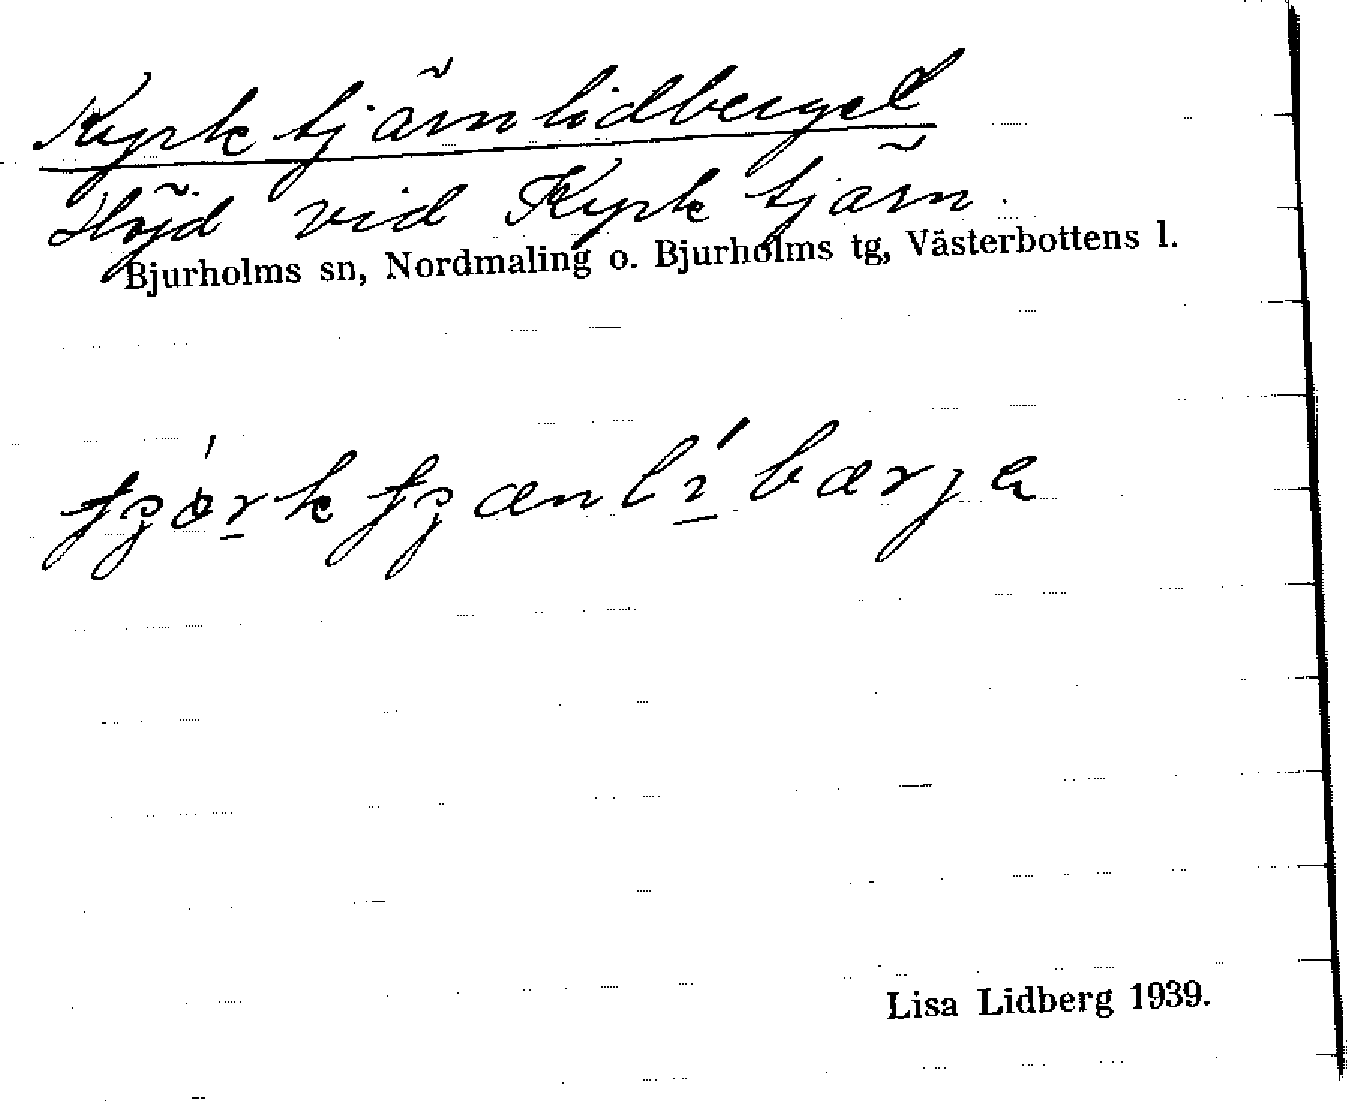 Kyrktjärnlidberget
Höjd vid Kyrktjärn.
Bjurholms sn, Nordmaling o. Bjurholms tg, Västerbottens l.
Lisa Lidberg 1939.